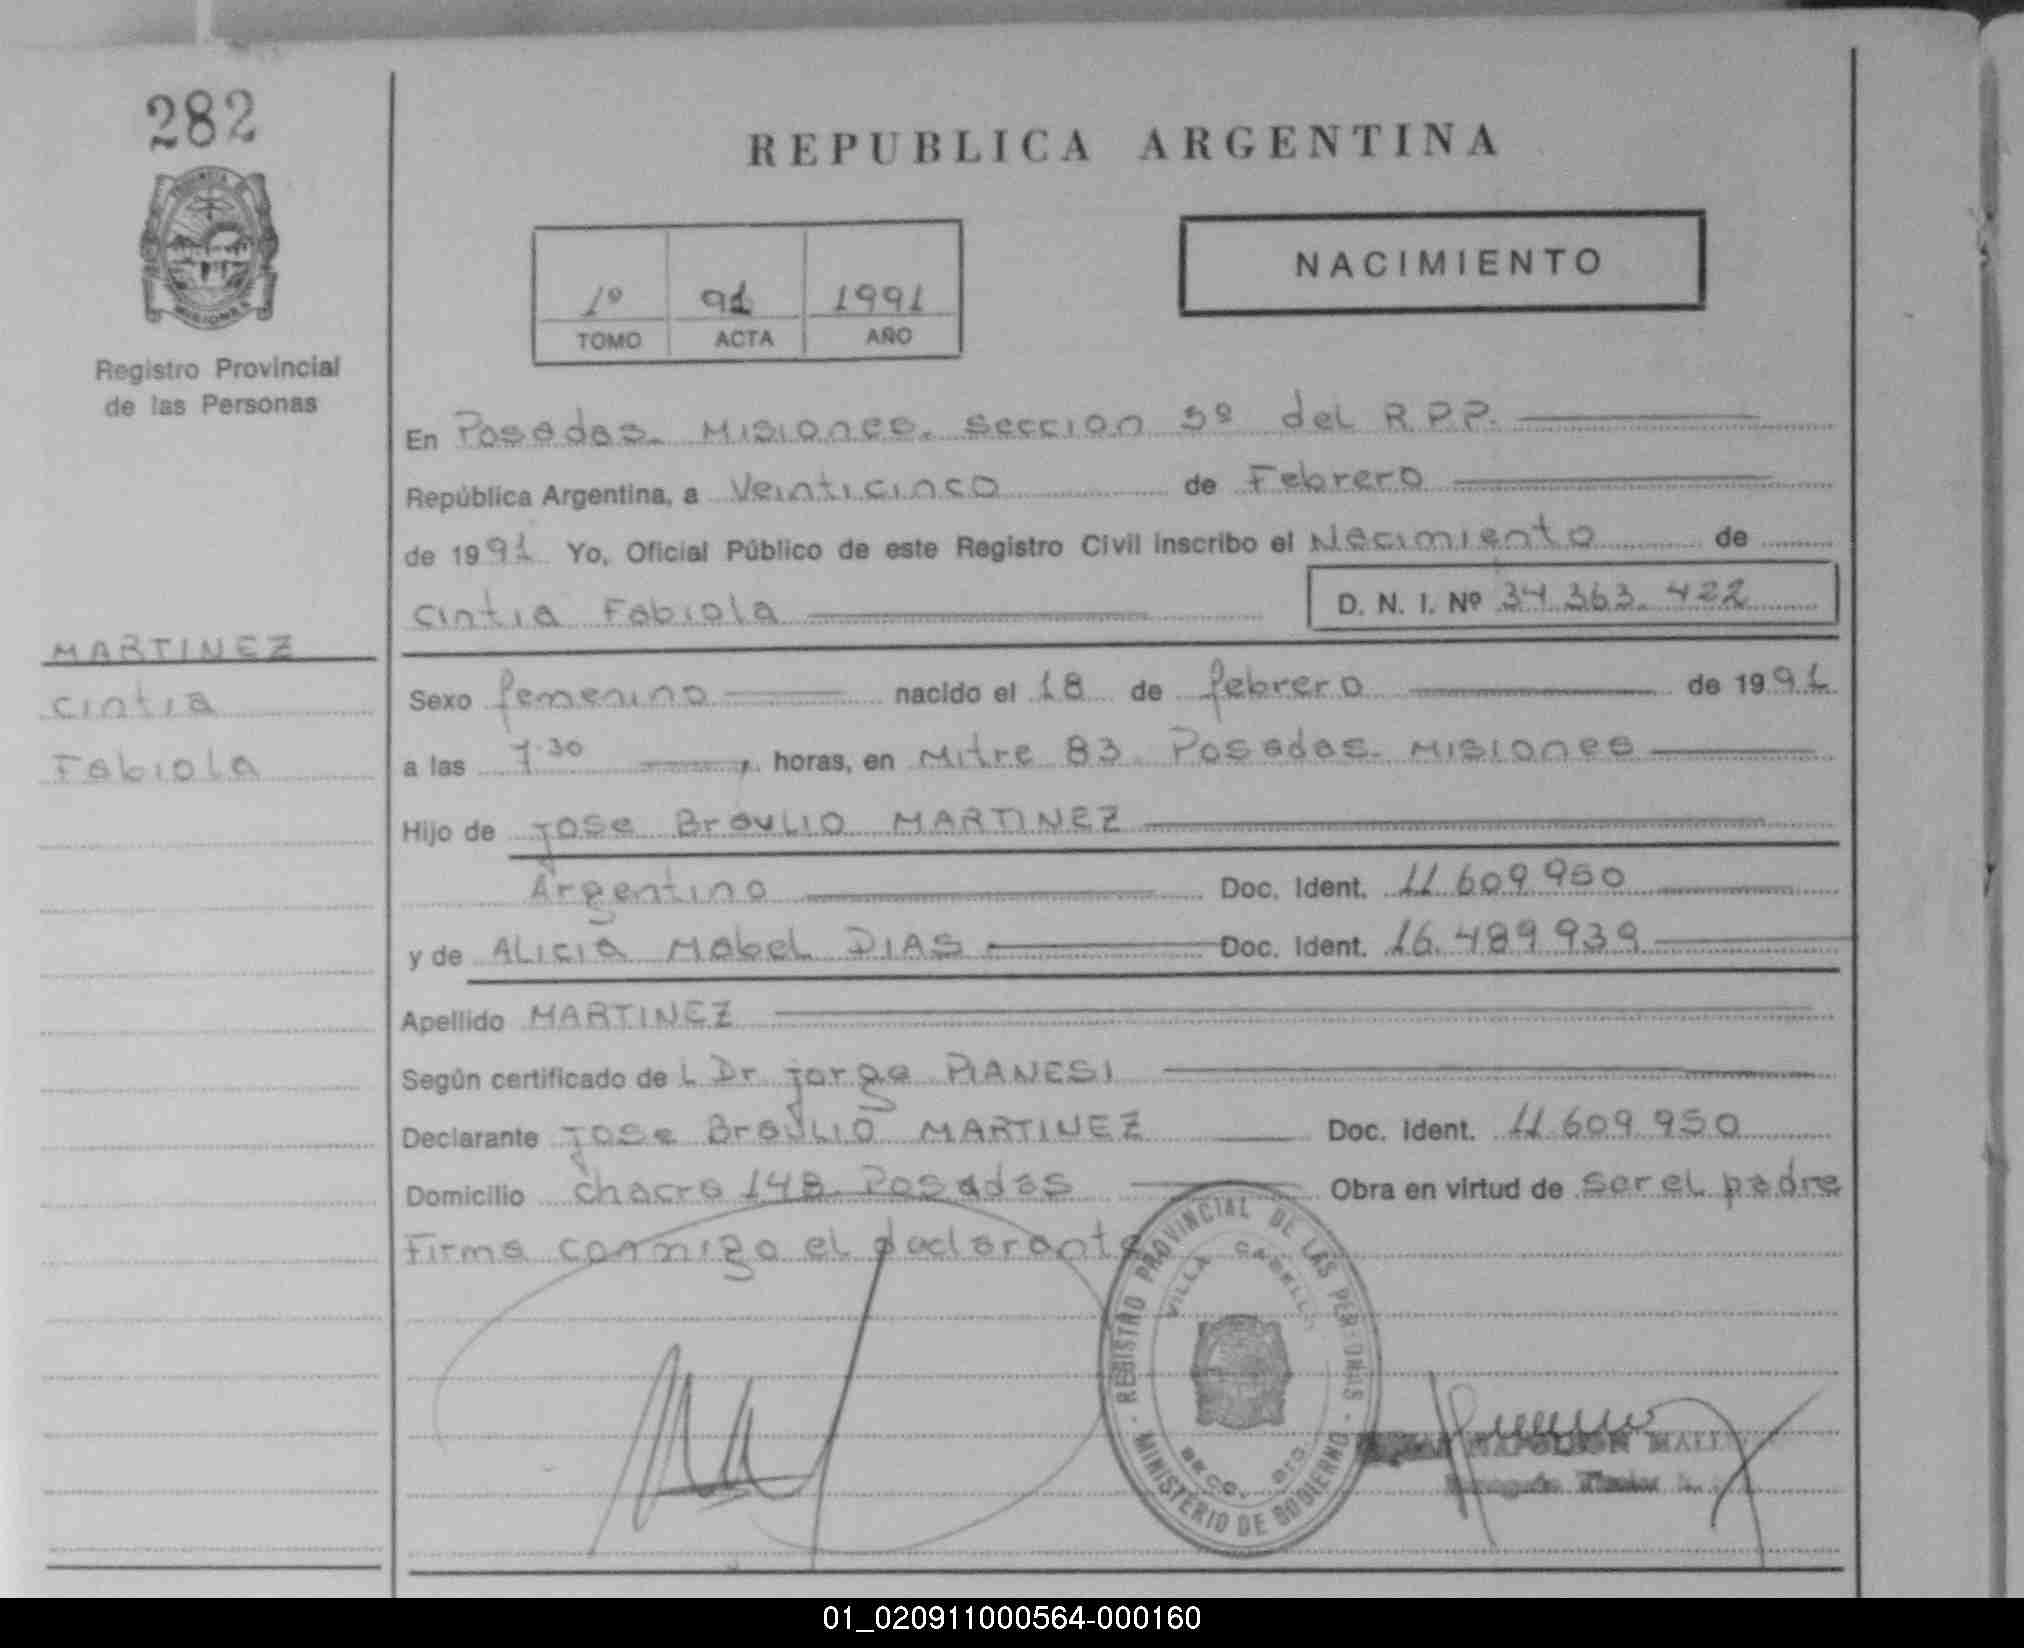 282
Registro Provincial
de las Personas
MARTINEZ
Cintia
Fabiola
REPUBLICA ARGENTINA
1º 91 1991
TOMO ACTA AÑO
NACIMIENTO
En Posadas. Misiones. Seccion 5º del R.P.P.
República Argentina, a Veinticinco de Febrero
de 1991 Yo, Oficial Público de este Registro Civil inscribo el Nacimiento de
Cintia Fabiola D. N. I. Nº 34.363.422
Sexo femenino nacido el 18 de febrero de 1991
a las 7.30 horas, en Mitre 83 Posadas. Misiones
Hijo de Jose Braulio MARTINEZ
Argentino Doc. Ident. 11.609.950
y de Alicia Mabel DIAS Doc. Ident. 16.489.939
Apellido MARTINEZ
Según certificado de L Dr. Jorge PIANESI
Declarante Jose Braulio MARTINEZ Doc. Ident. 11.609.950
Domicilio Chacra 148. Posadas Obra en virtud de ser el padre
Firma conmigo el declarante
REGISTRO PROVINCIAL DE LAS PERSONAS
VILLA CABELLO
MINISTERIO DE GOBIERNO
NAPOLEON
01_020911000564-000160